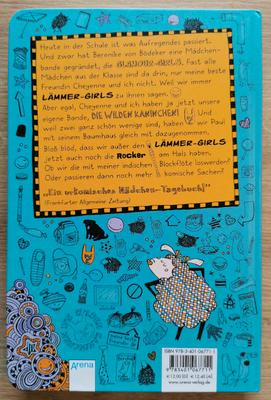 Heute in der Schule ist was Aufregendes passiert.
Und zwar hat Berenike von Bödeker eine Mädchen-
bande gegründet, die GLAMOUR-GIRLS. Fast alle
Mädchen aus der Klasse sind da drin, nur meine beste
Freundin Cheyenne und ich nicht. Weil wir immer
LÄMMER-GIRLS zu ihnen sagen.
Aber egal, Cheyenne und ich haben ja jetzt unsere
eigene Bande, DIE WILDEN KANINCHEN! Und
weil zwei ganz schön wenige sind, haben wir Paul
mit seinem Baumhaus gleich mit dazugenommen.
Bloß blöd, dass wir außer den LÄMMER-GIRLS
jetzt auch noch die Rocker am Hals haben.
Ob wir die mit meiner indischen Blockflöte loswerden?
Oder passieren dann noch mehr komische Sachen?
"Ein urkomisches Mädchen-Tagebuch!"
(Frankfurter Allgemeine Zeitung)
Arena
ISBN 978-3-401-06771-1
9 783401 067711
www.arena-verlag.de